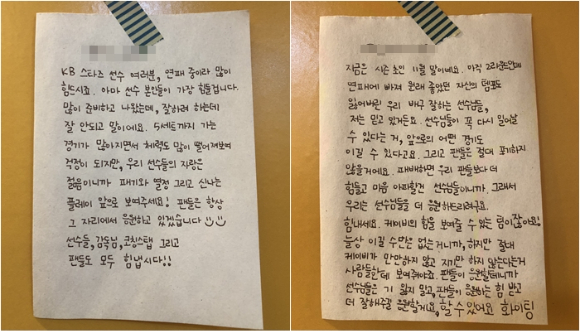 KB 스타즈 선수 여러분, 연패 중이라 많이
힘드시죠. 아마 선수 본인들이 가장 힘들겁니다.
많이 준비하고 나왔는데, 잘하려 하는데
잘 안되고 말이에요. 5세트까지 가는
경기가 많아지면서 체력도 많이 떨어져보여
걱정이 되지만, 우리 선수들의 자랑은
젊음이니까 패기와 열정 그리고 신나는
플레이 앞으로 보여주세요! 팬들은 항상
그 자리에서 응원하고 있겠습니다
선수들, 감독님, 코칭스탭 그리고
팬들도 모두 힘냅시다!!
지금은 시즌 초인 11월 말이네요. 아직 2라운드인데
연패에 빠져 원래 좋았던 자신의 템포도
잃어버린 우리 배구 잘하는 선수님들,
저는 믿고 있거든요. 선수님들이 꼭 다시 일어날
수 있다는 거, 앞으로의 어떤 경기도
이길 수 있다고요. 그리고 팬들은 절대 포기하지
않을게요. 패배하면 우리 팬들보다 더
힘들고 마음 아파할건 선수님들이니까, 그래서
우리는 선수님들을 더 응원하드리려구요.
힘내세요. 케이비의 힘을 보여줄 수 있는 팀이잖아요!
늘상 이길 수만은 없는거니까, 하지만 절대
케이비가 만만하지 않고 지기만 하지 않는다는거
사람들한테 보여줘야죠. 팬들이 응원할테니까
선수님들은 기 잃지 말고, 팬들이 응원하는 힘 받고
더 잘해주길 응원할게요, 할 수 있어요 화이팅